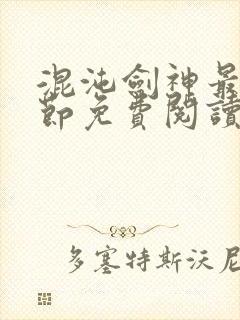 混沌劍神最
節免費閱讀
多塞特斯沃尼